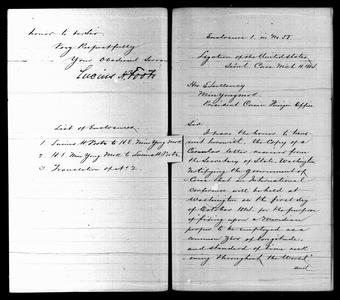 honor to be Sir
Very Respectfully
Your Obedient Servant
Lucius H. Foote
List of Enclosures
1 Lucius H. Foote to H.E. Min Yong Mok
2 H.E. Min Yong Mok to Lucius H. Foote
3 Translation of No 2.
Enclosure 1. in No 55.
Legation of the United States
Seoul, Corea March 11,
His Excellency
Min Yong Mok
President Corean Foreign Office
Sir
I have the honor to transmit
herewith, the Copy of a
Circular letter received from
the Secretary of State, Washington
notifying the Government of
Corea that an International
Conference will be held at
Washington on the first day
of October 1884 for the purpose
of fixing upon a Meridian
proper to be employed as a
common Zero of Longitude,
and standard of time reck
oning throughout the World
and